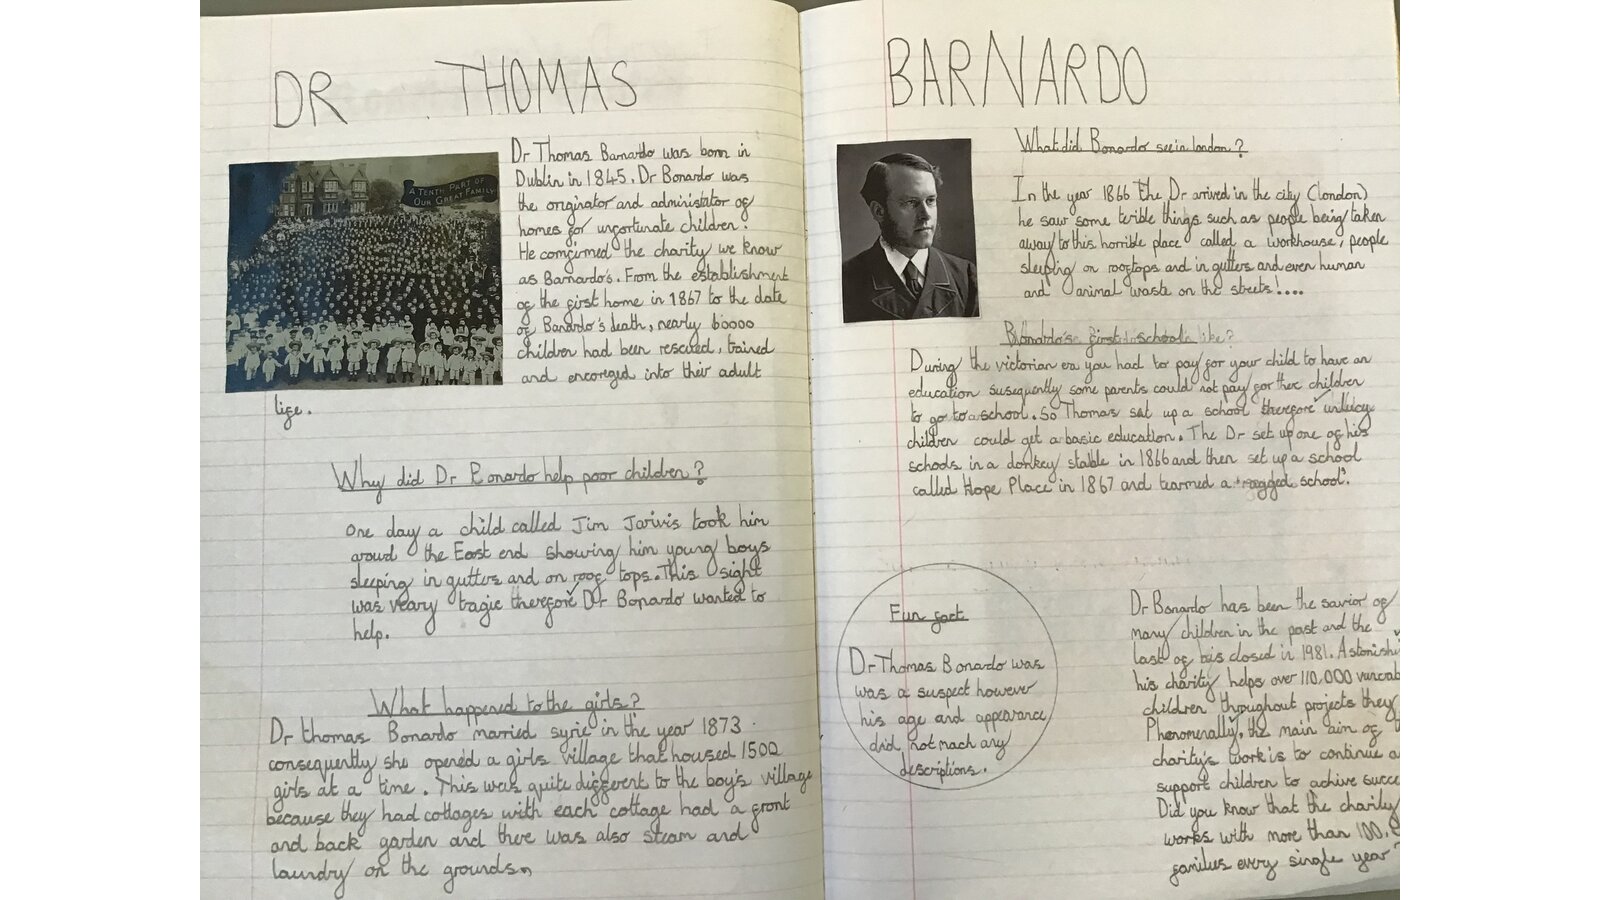 DR THOMAS BARNARDO
A TENTH PART OF
OUR GREAT FAMILY
Dr Thomas Barnardo was born in
Dublin in 1845. Dr Bonardo was
the originator and administator of
homes for unfortunate children.
He comfirmed the charity we know
as Barnardo's. From the establishment
of the first home in 1867 to the date
of Banardo's death, nearly 60000
children had been rescued, trained
and encoreged into their adult
life.
Why did Dr Bonardo help poor children?
One day a child called Jim Jarivis took him
aroud the East end showing him young boys
sleeping in gutters and on roof tops. This sight
was veary tragic therefore Dr Bonardo wanted to
help.
What happened to the girls?
Dr thomas Bonardo married syrie in the year 1873
consequently she opened a girls village that housed 1500
girls at a time. This was quite different to the boy's village
because they had cottages with each cottage had a front
and back garden and there was also steam and
laundry on the grounds.
What did Bonardo see in london?
In the year 1866 the Dr arrived in the city (London)
he saw some terible things such as people being taken
away to this horrible place called a workhouse, people
sleeping on rooftops and in gutters and even human
and animal waste on the streets!....
Bonardo's first school like?
During the victorian era you had to pay for your child to have an
education susequently some parents could not pay for there children
to go to a school. So Thomas sat up a school therefore unlucy
children could get a basic education. The Dr set up one of his
schools in a donkey stable in 1866 and then set up a school
called Hope Place in 1867 and tearmed a 'ragged school'.
Fun fact
Dr Thomas Bonardo was
was a suspect however
his age and appearance
did not mach any
descriptions.
Dr Bonardo has been the savior of
many children in the past and the
last of his closed in 1981. Astonishi
his charity helps over 110,000
children throughout projects they
Phenomenally, the main aim of
charity's work is to continue a
support children to achive succe
Did you know that the charity
works with more than 100,
families every single year?